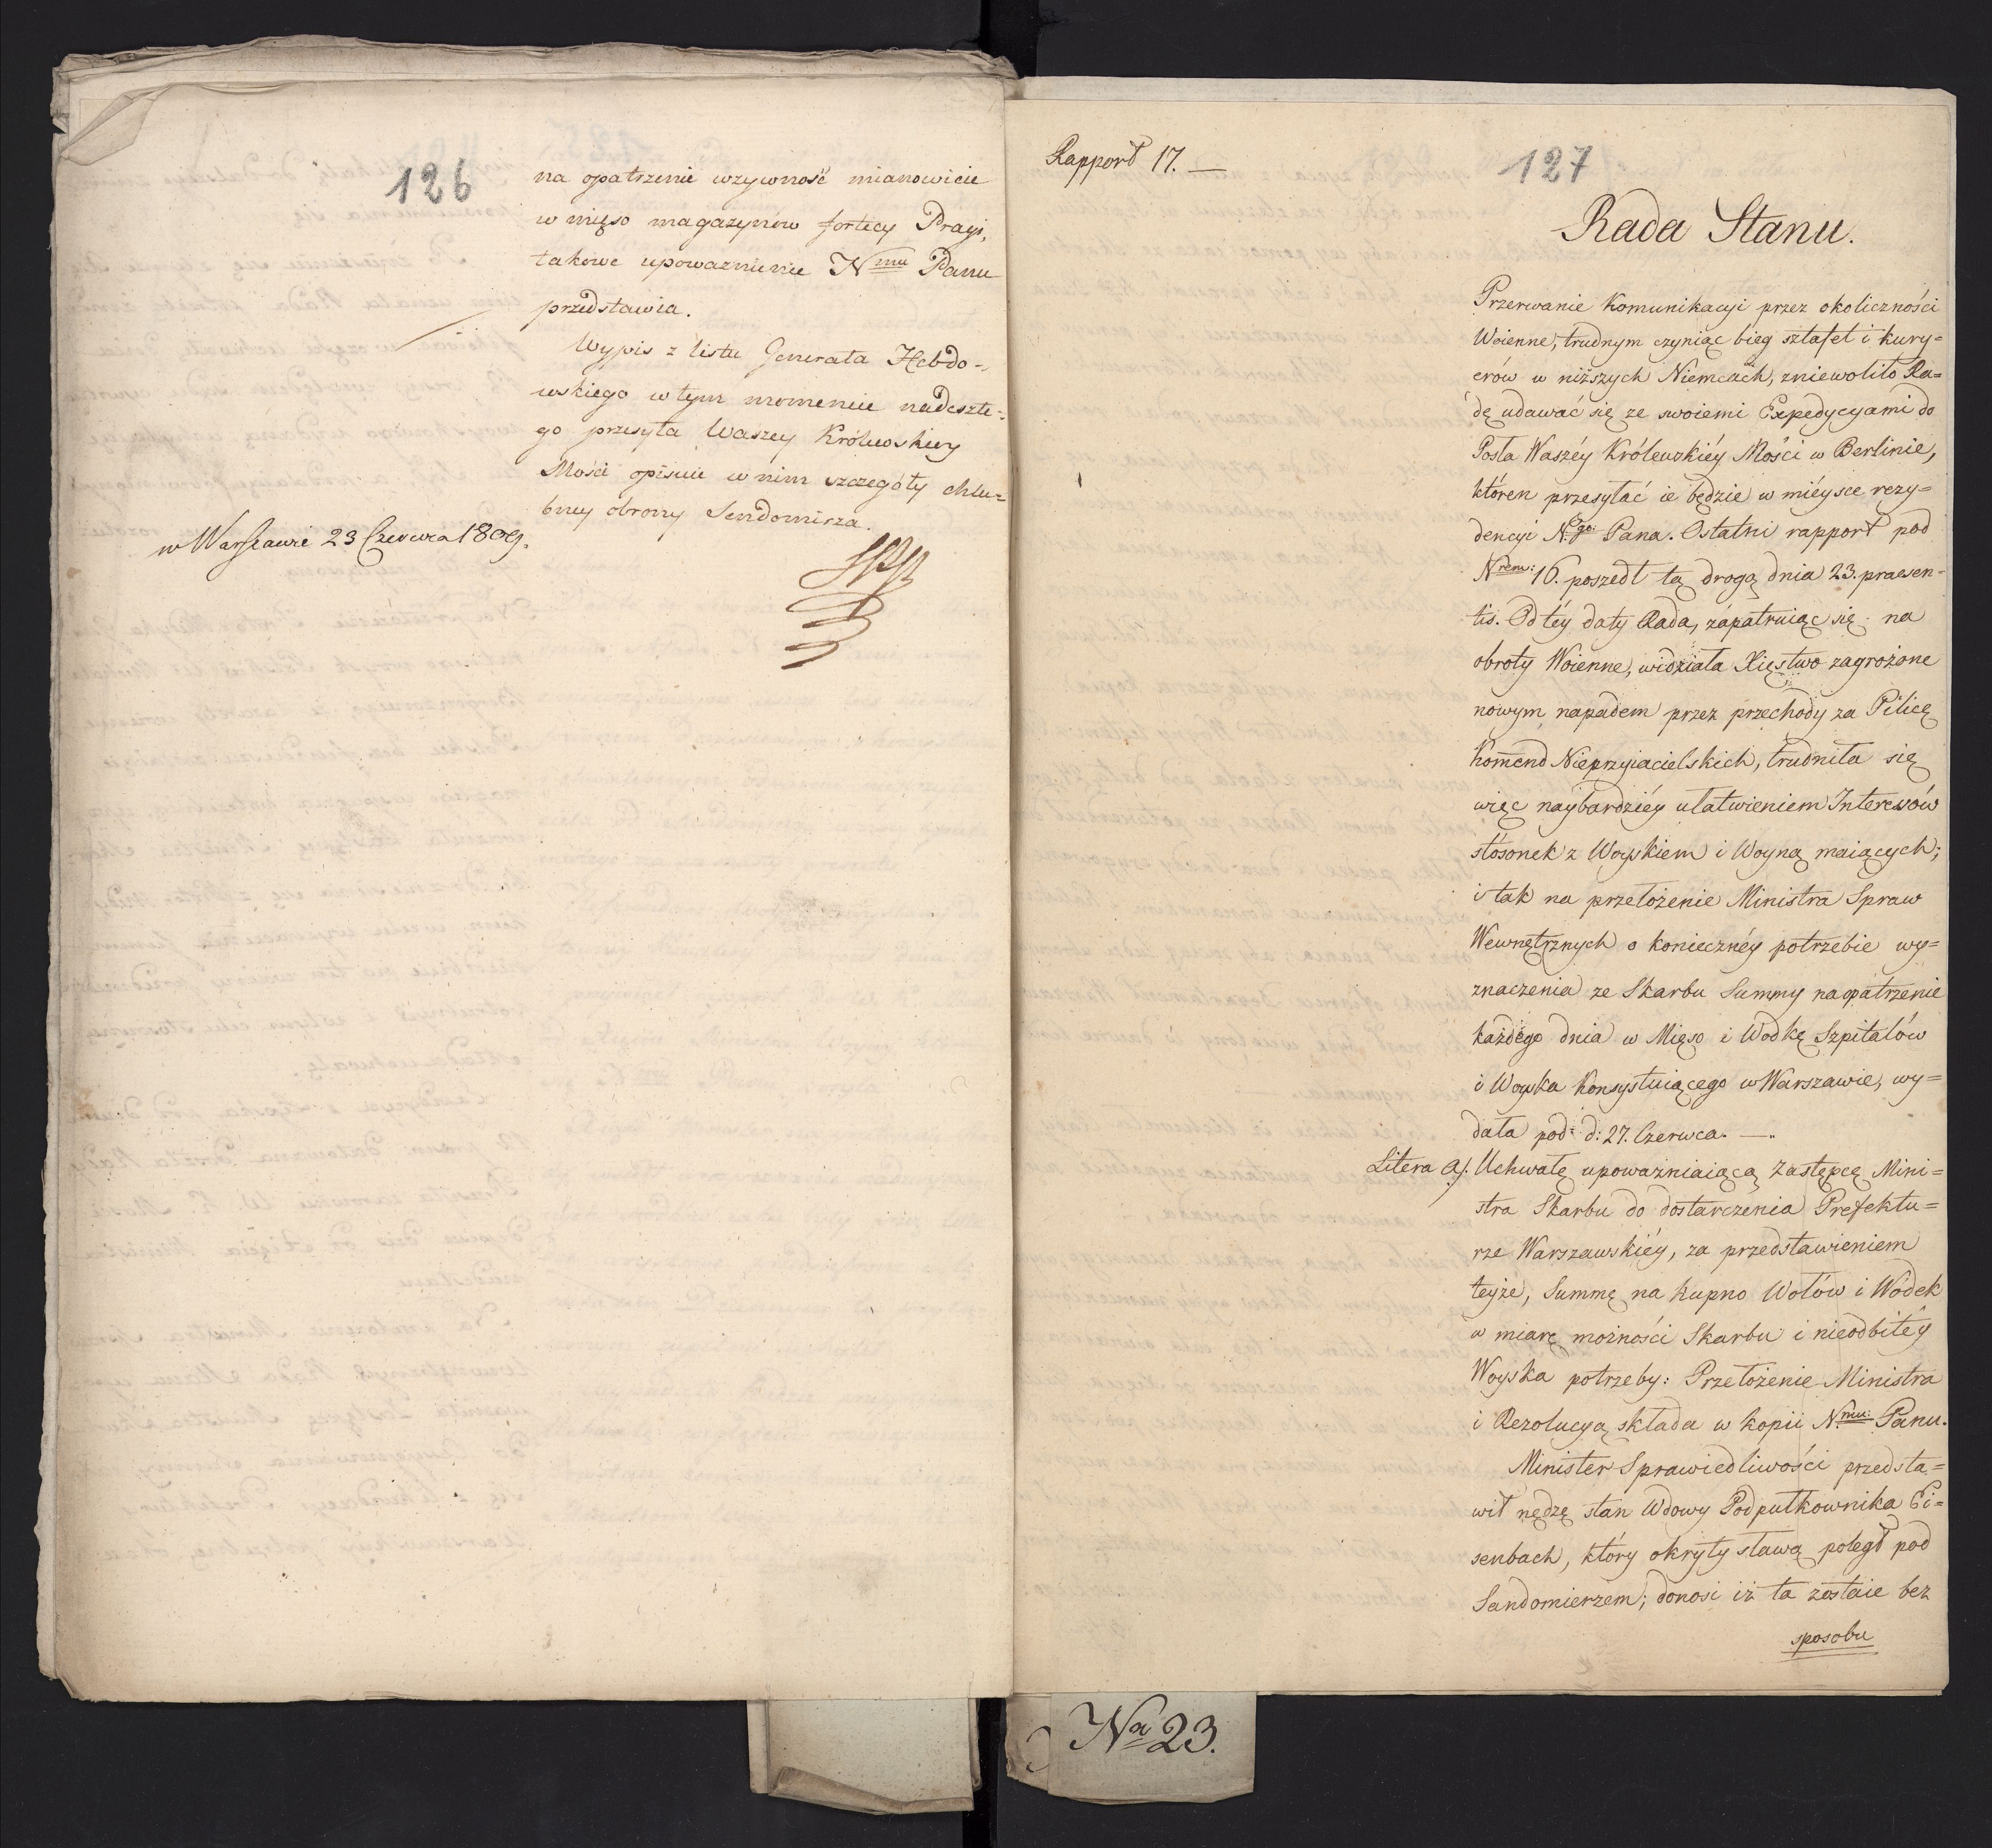 126
na opatrzenie w żywność mianowicie
w mięso magazynów fortecy Pragi,
takowe upoważnienie Nmu Panu
przedstawia.
Wypis z listu Generała Hebdo-
wskiego w tym momencie nadeszłe-
go przesyła Waszey Królewskiey
Mości opisuie w nim szczegóły chlu-
bney obrony Sendomirza.
w Warszawie 23 Czerwca 1809.
Rapport 17. —
127
Rada Stanu.
Przerwanie Komunikacyi przez okoliczności
Woienne, trudnym czyniąc bieg sztafet i kury=
erów w niższych Niemcach, zniewoliło Ra=
dę udawać się ze swoiemi Expedycyami do
Posła Waszéy Królewskiéy Mości w Berlinie,
któren przesyłać ie będzie w miéysce rezy=
dencyi Ngo: Pana. Ostatni rapport pod
Nrem: 16. poszedł tą drogą dnia 23. praesen=
tis. Od téy daty Rada, zapatruiąc się na
obroty Woienne, widziała Xięstwo zagrożone
nowym napadem przez przechody za Pilicę
Komend Nieprzyiacielskich, trudniła się
więc naybardziéy ułatwieniem Interessów
stósonek z Woyskiem i Woyną maiących;
i tak na przełożenie Ministra Spraw
Wewnętrznych o koniecznéy potrzebie wy=
znaczenia ze Skarbu Summy na opatrzenie
każdego dnia w Mięso i Wodkę Szpitalów
i Woyska Konsystuiącego w Warszawie, wy=
dała pod d: 27. Czerwca. —.
Litera a). Uchwałę upoważniaiącą Zastępcę Mini=
stra Skarbu do dostarczenia Prefektu=
rze Warszawskiéy, za przedstawieniem
teyże, Summę na kupno Wołów i Wódek
w miarę możności Skarbu i nieodbitéy
Woyska potrzeby: Przełożenie Ministra
i Rezolucyą składa w kopii Nmu: Panu.
Minister Sprawiedliwości przedsta=
wił nędzę stan Wdowy Podpułkownika Ei=
senbach, który okryty sławą poległ pod
Sandomierzem; donosi iż ta zostaie bez
sposobu
Na 23.